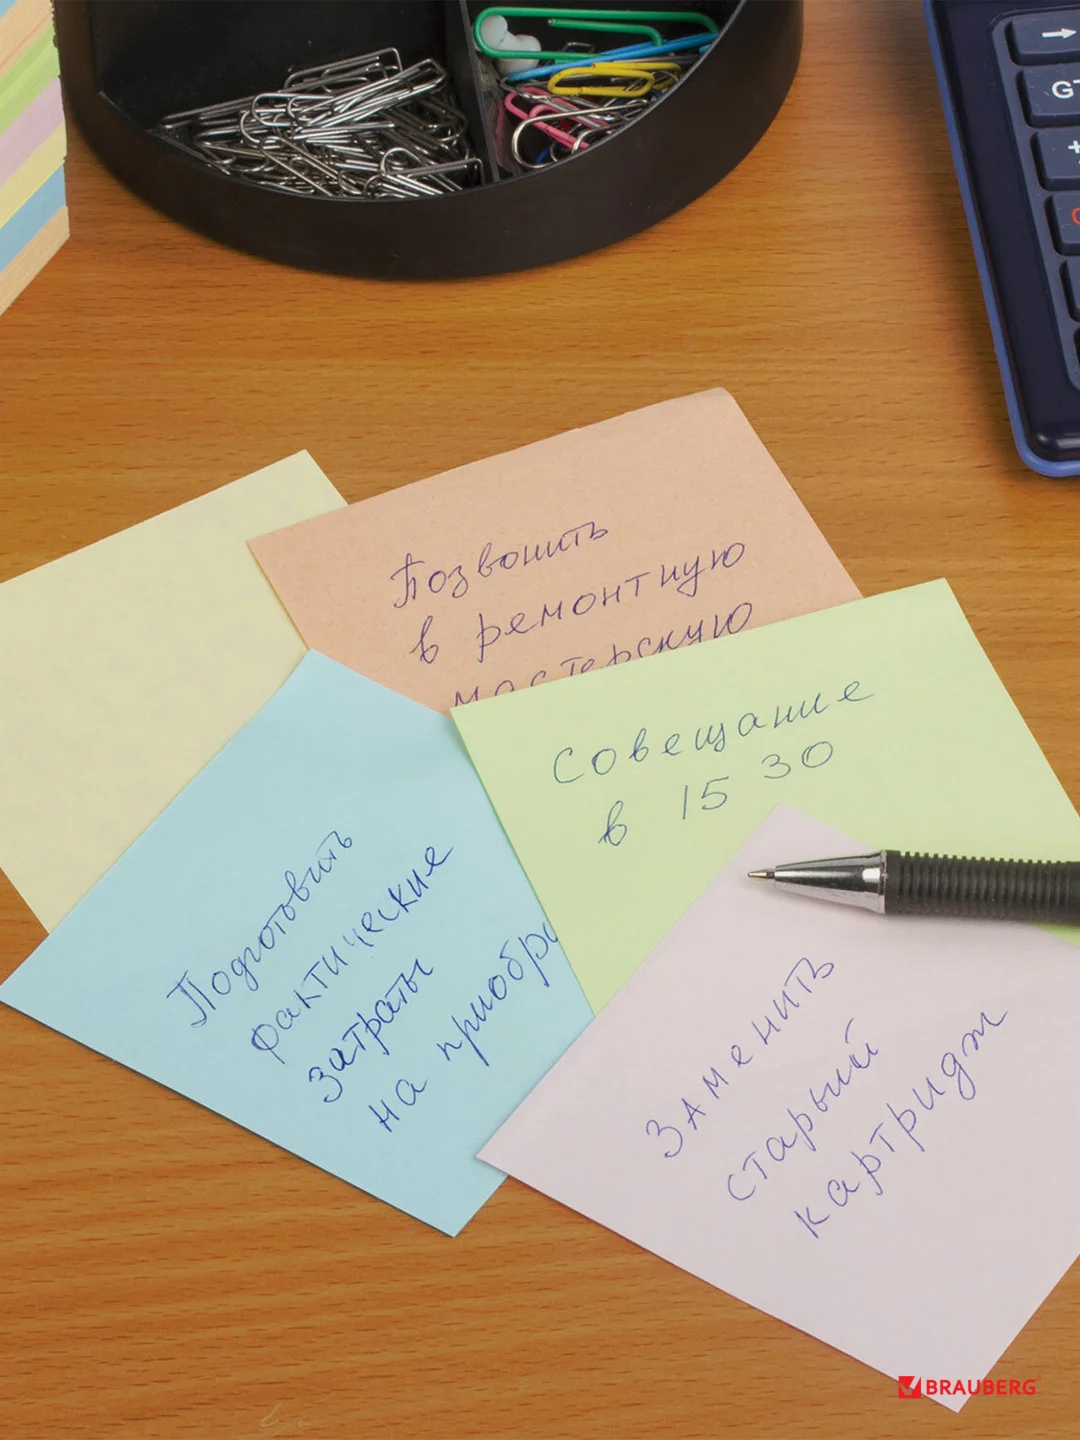 →
GT
Позвонить
в ремонтную
мастерскую
Совещание
в 15 30
Подготовить
фактические
затраты
на приобр
Заменить
старый
картридж
BRAUBERG